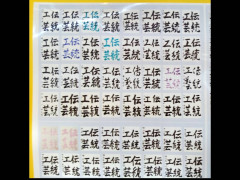 伝統工芸 伝統工芸 伝統工芸 伝統工芸 伝統工芸 伝統工芸 伝統工芸
伝統工芸 伝統工芸 伝統工芸 伝統工芸 伝統工芸 伝統工芸 伝統工芸
伝統工芸 伝統工芸 伝統工芸 伝統工芸 伝統工芸 伝統工芸 伝統工芸
伝統工芸 伝統工芸 伝統工芸 伝統工芸 伝統工芸 伝統工芸 伝統工芸
伝統工芸 伝統工芸 伝統工芸 伝統工芸 伝統工芸 伝統工芸 伝統工芸
伝統工芸 伝統工芸 伝統工芸 伝統工芸 伝統工芸 伝統工芸 伝統工芸
伝統工芸 伝統工芸 伝統工芸 伝統工芸 伝統工芸 伝統工芸 伝統工芸